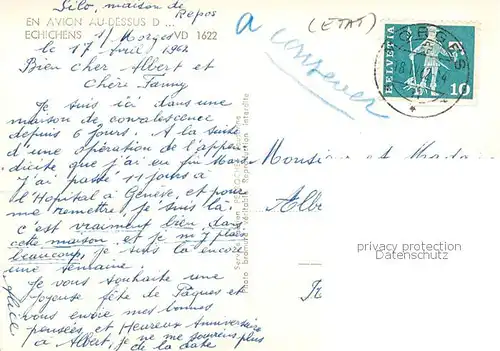 Silo, maison de
Repos
EN AVION AU-DESSUS D ...
ECHICHENS s/Morges VD 1622
le 17 avril 1962
Bien cher Albert et
Chère Fanny
Je suis ici dans une
maison de convalescence
depuis 6 jours. A la suite
d'une opération de l'appen
dicite que j'ai eu fin Mars
J'ai passé 11 jours à
l'Hôpital à Genève, et pour
me remettre, je suis là.
c'est vraiment bien dans
cette maison et je m'y plais
beaucoup, je suis là encore
une semaine.
Je vous souhaite une
Joyeuse fête de Pâques et
vous envoie mes bonnes
pensées, et Heureux Anniversaire
à Albert, je ne me souviens plus
de la date
Alice
a conserver
(ETAT)
Photo véritable Reproduction interdite
Monsieur et Madame
Albe
privacy protection
Datenschutz
HELVETIA
10
MORGES
18